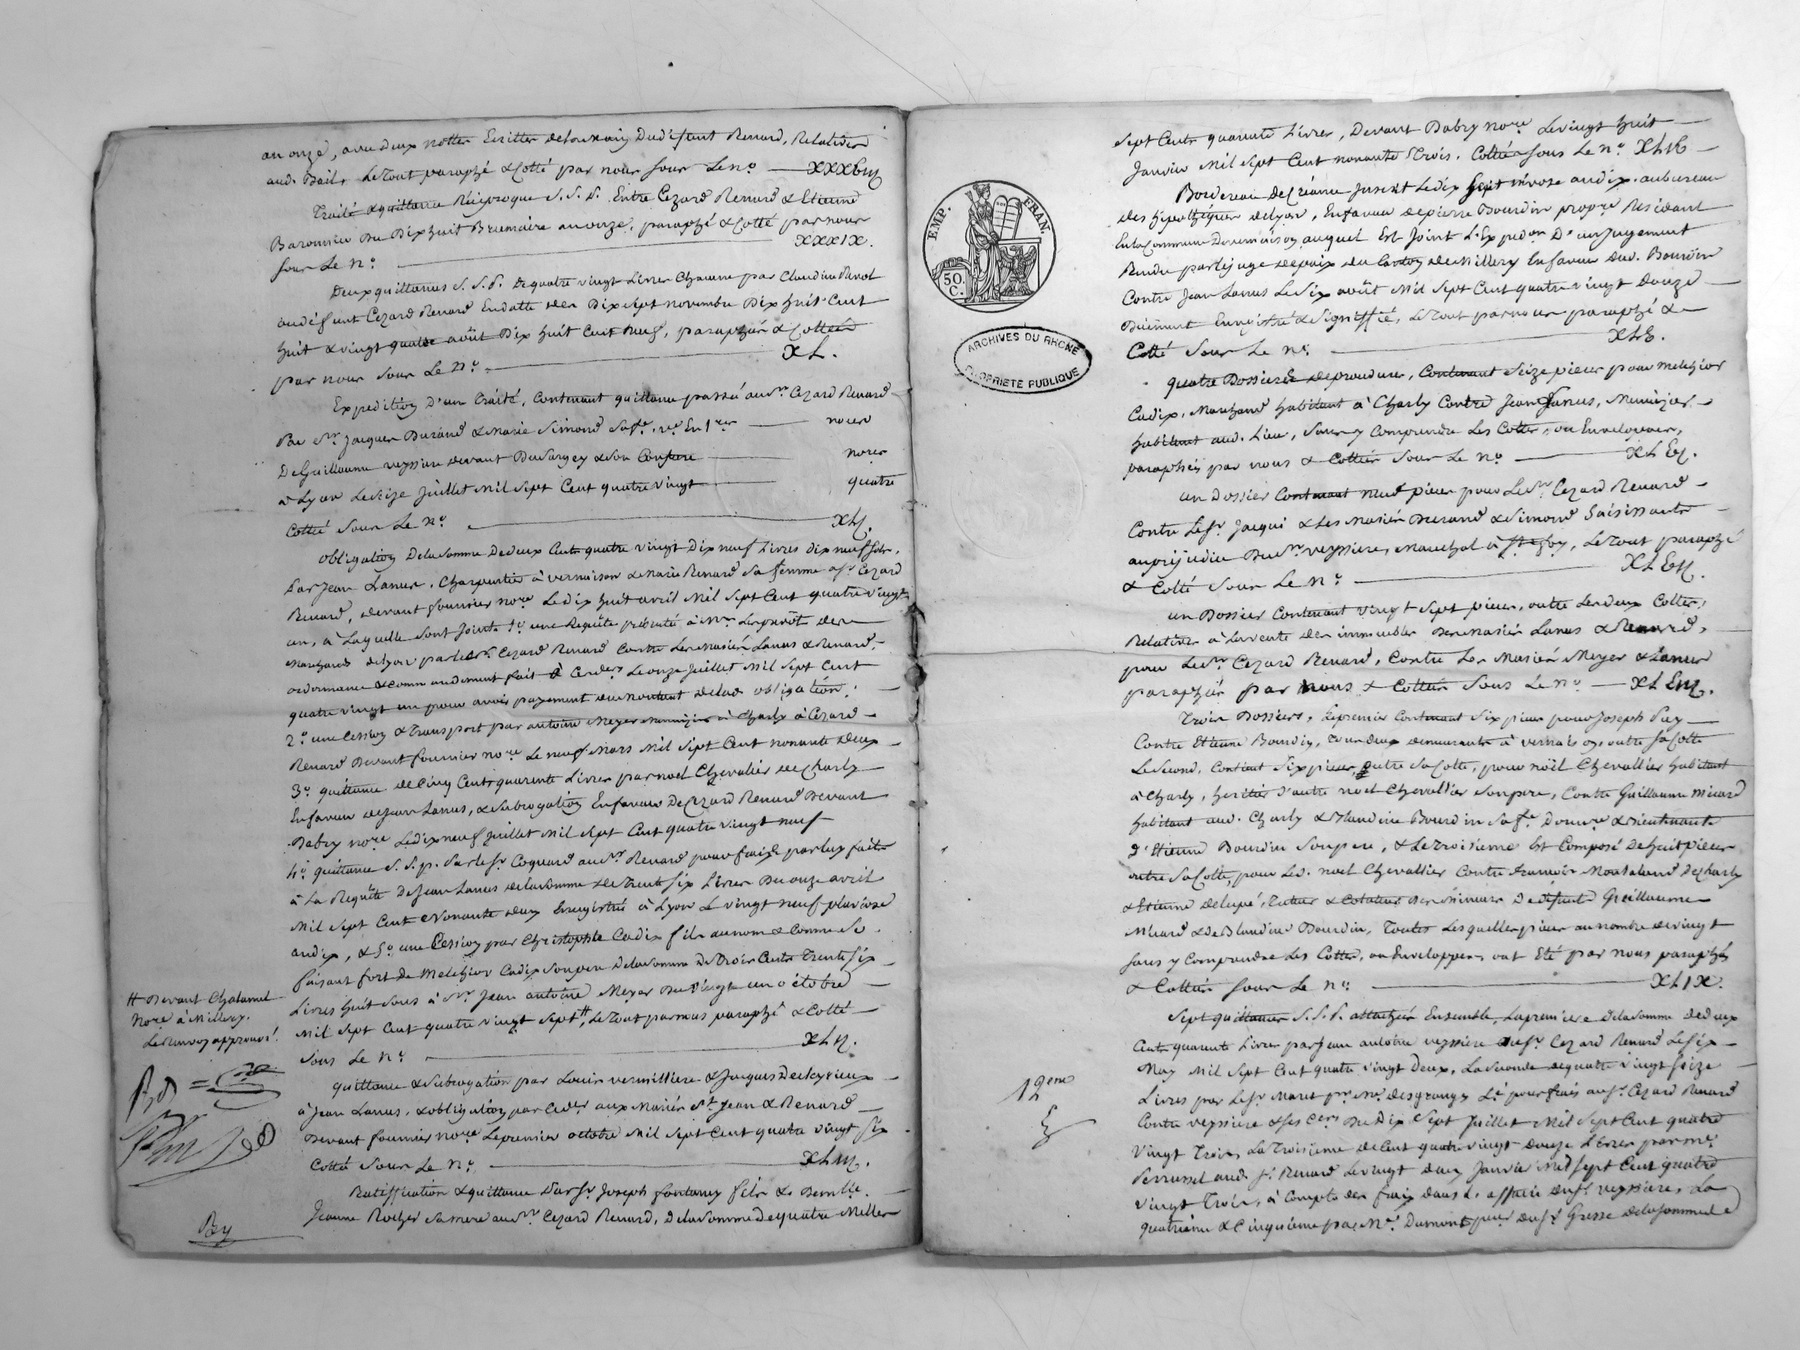 an onze, avec deux nottes Ecrittes de la main dudit feut Renard, Relatives
aud. Bail, Le Tout paraphé & Cotté par nous sous Le no. XXXVIII
Traité & quittance Réciproque S. S. P. Entre Cezard Renard & Etienne
Baronnier Du Dix huit Brumaire an onze, paraphé & Cotté par nous
sous Le no. XXXIX.
Deux quittances S. S. P. De quatre vingt Livres Chacune par Claudine
au défunt Cezard Renard En datte des Dix sept novembre Dix huit Cent
huit & vingt quatre août Dix huit Cent Neuf, paraphées & Cottées
par nous sous Le no. XL.
Expedition D'un Traité, Contenant quittance passé au Sr. Cezard Renard
Par Sr. Jacques Durand & Marie Simond Sa fe. ve. En 1res noces
De Guillaume veyssiere devant Dusurgey & Son Confrere nores
à Lyon Le seize Juillet Mil Sept Cent quatre vingt quatre
Cotté Sous Le no. XLI.
Obligation De la Somme De deux Cent quatre vingt Dix neuf Livres dix neuf sols,
Par Jean Lanus, Charpentier à vernaison & Marie Renard Sa femme a Sr. Cezard
Renard, devant fournier nore. Le dix huit avril Mil Sept Cent quatre vingt
un, à Laquelle Sont Joints 1o. une Requête présenté à Mr. Le prevôt des
Marchands de Lyon par le Sr. Cezard Renard Contre Les Mariés Lanus & Renard,
ordonnance & commandement fait à Ceders Le onze Juillet Mil Sept Cent
quatre vingt un pour avoir payement du montant de lad. obligation,
2o. une Cession & Transport par antoine Meyer Menuizier à Charly à Cezard
Renard Devant fournier nore. Le neuf Mars Mil Sept Cent nonante Deux
3o. quittance de Cinq Cent quarante Livres par noel Chevalier de Charly
En faveur de Jean Lanus, & Subrogation En faveur De Cezard Renard Devant
Dabry nore. Le dix neuf Juillet Mil Sept Cent quatre vingt neuf
4o. quittance S. S. p. Par le Sr. Coquard au Sr. Renard pour frais par luy faits
à La Requête De Jean Lanus de la Somme de Trente Six Livres Du onze avril
Mil Sept Cent Nonante deux Enregistrée à Lyon Le vingt neuf pluviose
an dix, & 5o. une Cession par Christophle Cadix fils au nom & Comme Se
faisant fort de Melchior Cadix Son pere De la Somme De Trois Cents Trente Six
Livres huit Sous à Sr. Jean antoine Meyer Du vingt un octobre
Mil Sept Cent quatre vingt Sept #, Le Tout par nous paraphé & Cotté
Sous Le no. XLII.
# Devant Chatannel
Nore à Millery.
Le Renvoy approuvé.
quittance & Subrogation par Louis vermilliere & Jacques
à Jean Lanus, & obligation par Ceders aux Mariés St. Jean & Renard
Devant fournier nore. Le premier octobre Mil Sept Cent quatre vingt Six
Cotté Sous Le no. XLIII.
Ratiffication & quittance Par Sr. Joseph fontany fils & Demlle.
Jeanne Rocher Sa mere au Sr. Cezard Renard, De la Somme De quatre Milles
Sept Cents quarante Livres, Devant Dabry nore. Le vingt huit
Janvier Mil Sept Cent nonante Trois. Cottée Sous Le no. XLIV
Bordereau De Créance Inscrit Le dix Sept nivose an dix au bureau
des hypotheques de Lyon, En faveur de pierre Bourdin propre. Résidant
En la Commune De vernaison auquel Est Joint L'Expedon. D'un Jugement
Rendu par le Juge de paix du Canton de Millery En faveur dud. Bourdin
Contre Jean Lanus Le Six août Mil Sept Cent quatre vingt Douze
Duement Enregistré & Signiffié, Le Tout par nous paraphé &
Cotté Sous Le no. XLV.
quatre Dossiers de procedure, Contenant Seize pieces pour Melchior
Cadix, Marchand habitant à Charly Contre Jean Lanus, Menuizier
habitant aud. Lieu, Sans y Comprendre Les Cottes, ou Enveloppes,
paraphées par nous & Cottées Sous Le no. XLVI.
un Dossier Contenant neuf pieces pour Le Sr. Cezard Renard
Contre Le Sr. Jacqui & Les Mariés Durand & Simond Saisissants
au préjudice Du Sr. veyssiere, Marechal à St. foy, Le Tout paraphé
& Cotté Sous Le no. XLVII.
un Dossier Contenant vingt Sept pieces, outre Les deux Cottes,
Relatives à La vente des immeubles Des Mariés Lanus & Renard,
pour Le Sr. Cezard Renard, Contre Les Mariés Meyer & Lanus
paraphées par nous & Cottées Sous Le no. XLVIII.
Trois Dossiers, Le premier Contenant Six pieces pour Joseph
Contre Etienne Bourdin, Tous deux demeurants à vernaison, outre Sa Cotte
Le Second, Contient Six pieces, outre Sa Cotte, pour noël Chevallier habitant
à Charly, heritier d'autre noel Chevallier Son pere, Contre Guillaume Micard
habitant aud. Charly & Blandine Bourdin Sa fe. Donare. & Lieutenante
d'Etienne Bourdin Son pere, & Le Troisieme Est Composé De huit pieces
outre Sa Cotte, pour Led. noel Chevallier Contre francois Montaland De Charly
& Etienne Delupé, Tuteur & Curateur Des Mineurs De défunts Guillaume
Micard & De Blandine Bourdin, Toutes Lesquelles pieces au nombre de vingt
Sans y Comprendre Les Cottes, ou Enveloppes, ont Eté par nous paraphés
& Cottées Sous Le no. XLIX.
Sept quittances S. S. P. attachées Ensemble, La premiere De la Somme De deux
Cents quarante Livres par Jean antoine veyssiere au Sr. Cezard Renard Le Six
May Mil Sept Cent quatre vingt Deux, La Seconde de quatre vingt Seize
Livres par Le Sr. Maret pr. Me. desgranges Lé pour frais au Sr. Cezard Renard
Contre veyssiere & Ses Cers. Du Dix Sept Juillet Mil Sept Cent quatre
vingt Trois, La Troisieme de Cent quatre vingt douze Livres par Me.
Perrussel aud. Sr. Renard Le vingt deux Janvier Mil Sept Cent quatre
vingt Trois, à Compte des frais dans L'affaire du Sr. veyssiere, La
quatrieme & Cinquieme par Me. Dumont pour du Sr. Gresse de la Somme de
12eme
EMP. FRAN.
50 C.
ARCHIVES DU RHÔNE
PROPRIETE PUBLIQUE